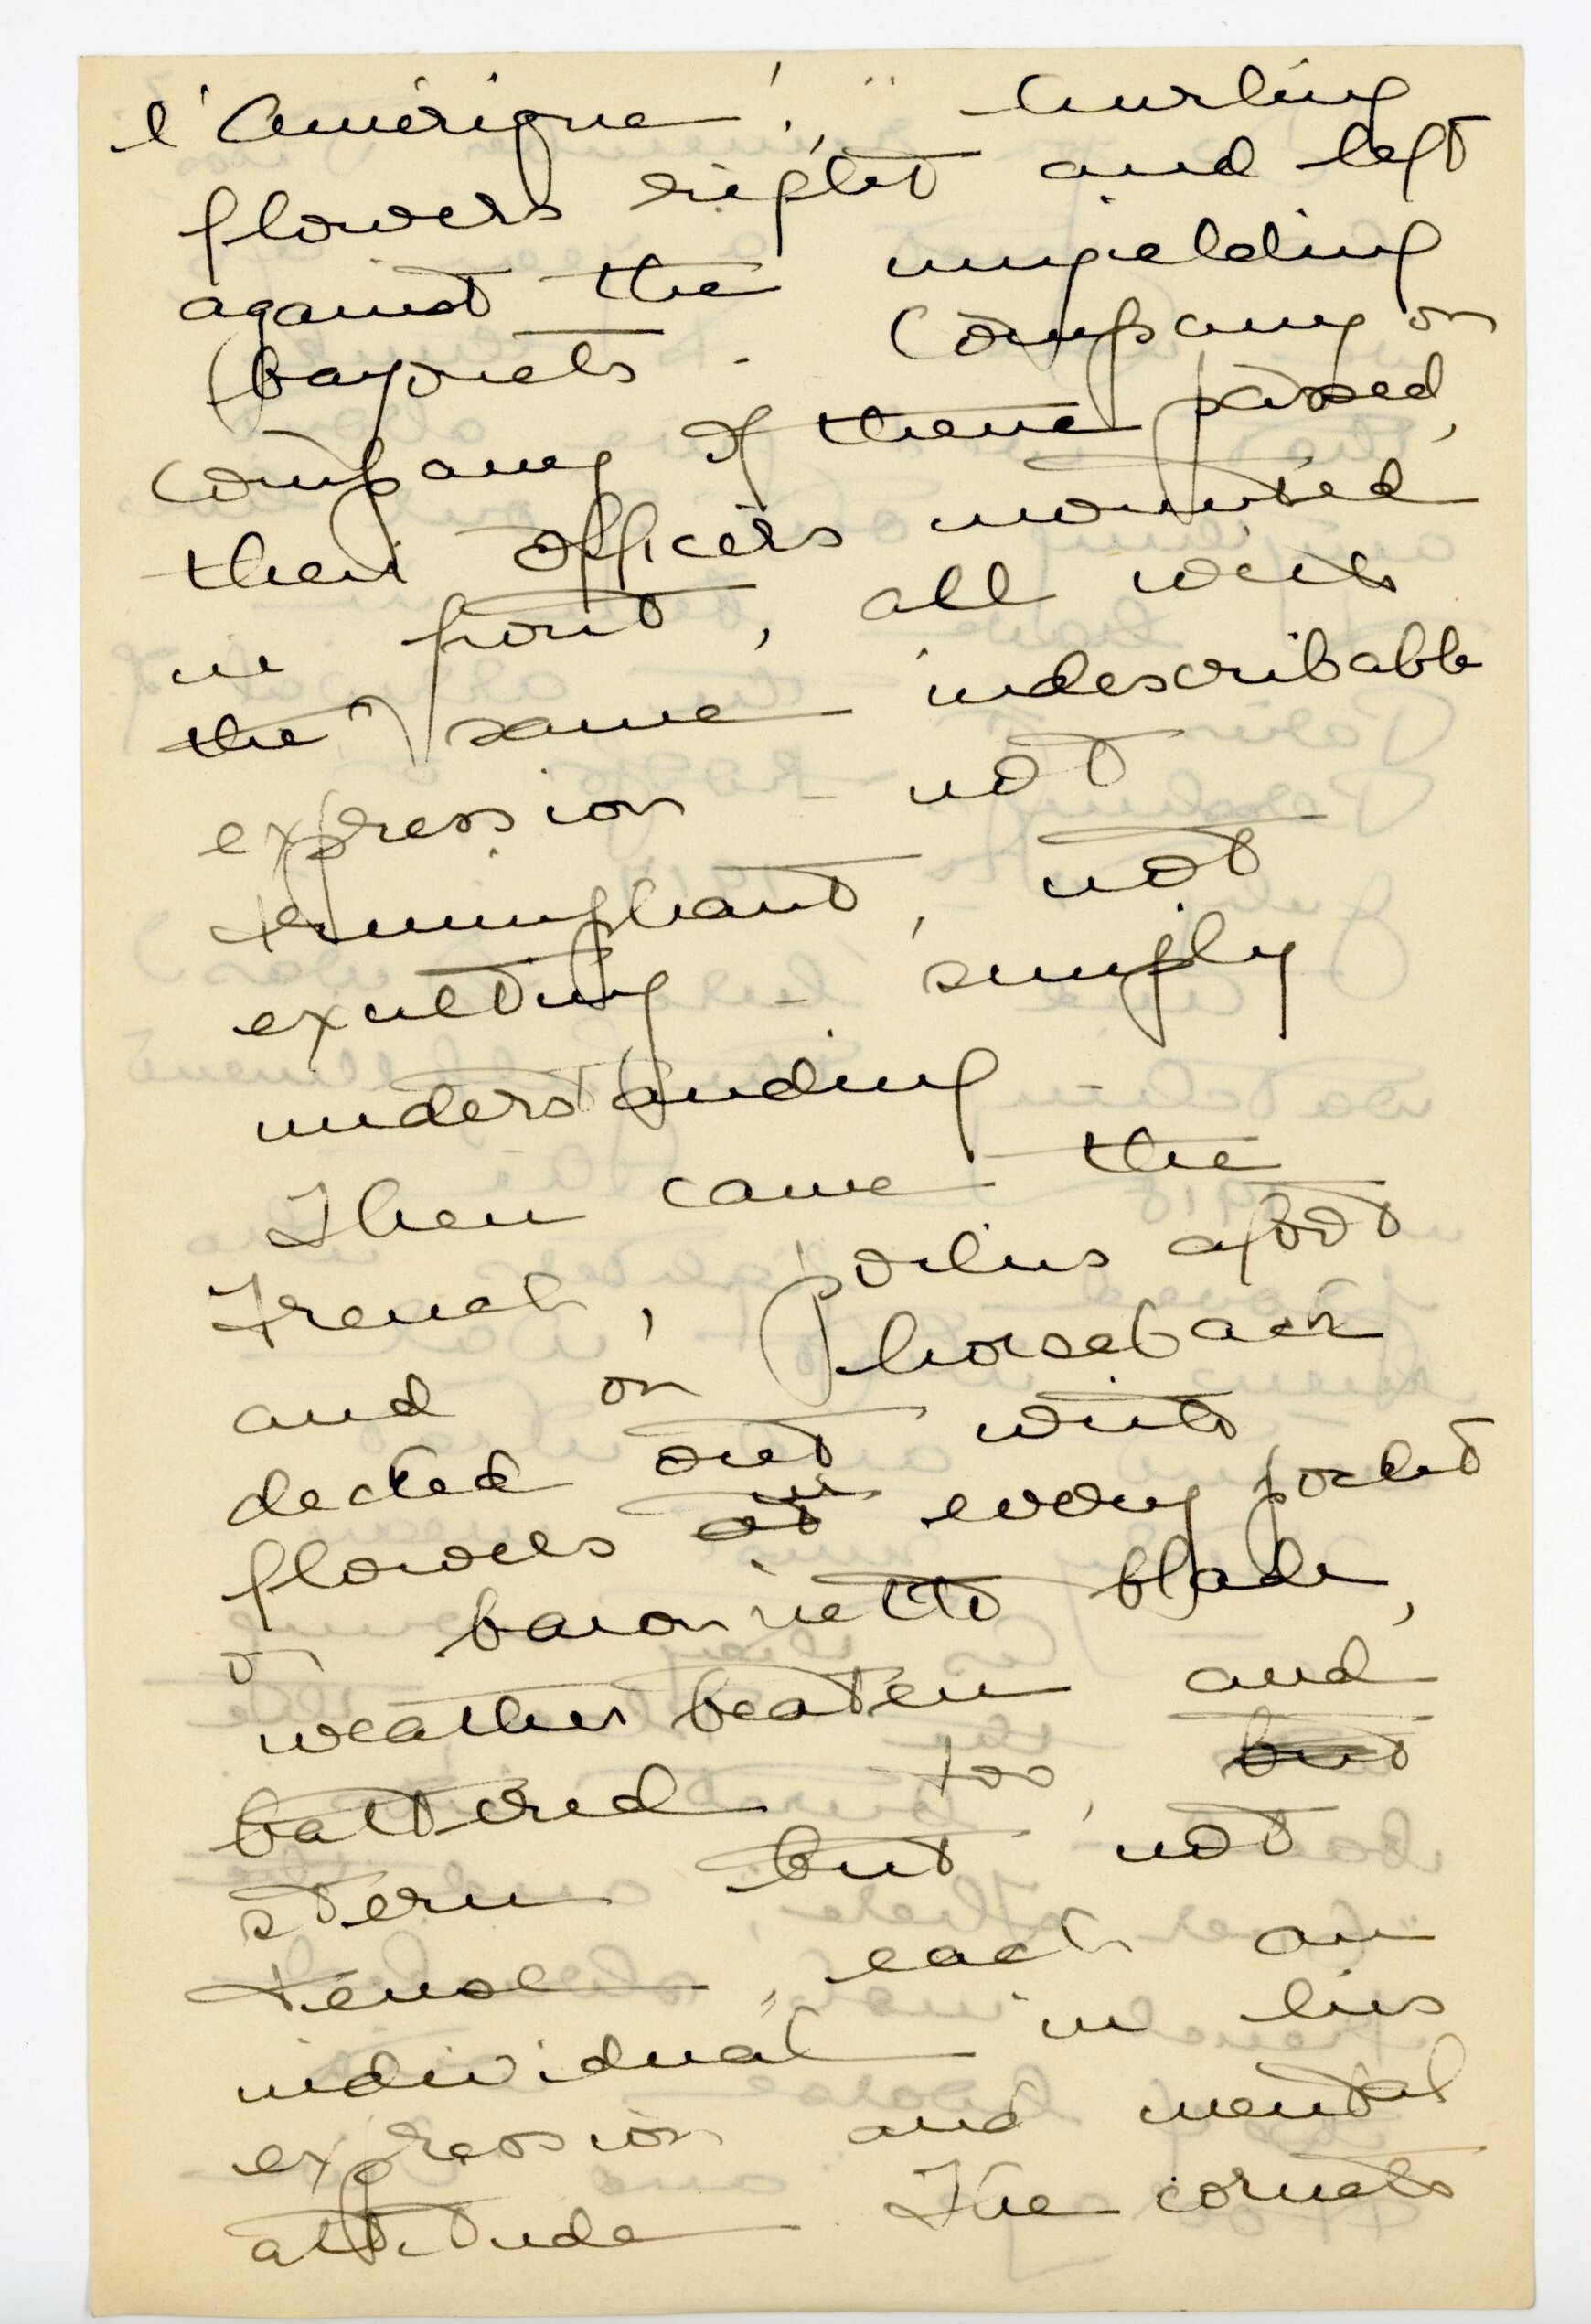 l'Amérique!" hurling
flowers right and left
against the unyielding
bayonets. Company on
company of them passed,
their officers mounted
in front, all with
the same indescribable
expression - not
triumphant, not
exulting - simply
understanding
Then came the
French, poilus afoot
and on horseback
decked out with
flowers at in every pocket
or baionnette blade,
weather beaten and
battered too, but
stern but not
tense, each an
individual in his
expression and mental
attitude. The cornets